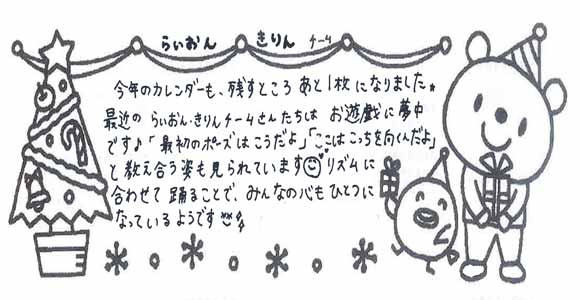 らいおん きりん チーム
今年のカレンダーも、残すところ あと1枚になりました。
最近の らいおん・きりんチームさんたちは お遊戯に夢中
です♪「最初のポーズはこうだよ」「ここはこっちを向くんだよ」
と教え合う姿も見られています リズムに
合わせて踊ることで、みんなの心もひとつに
なっているようです